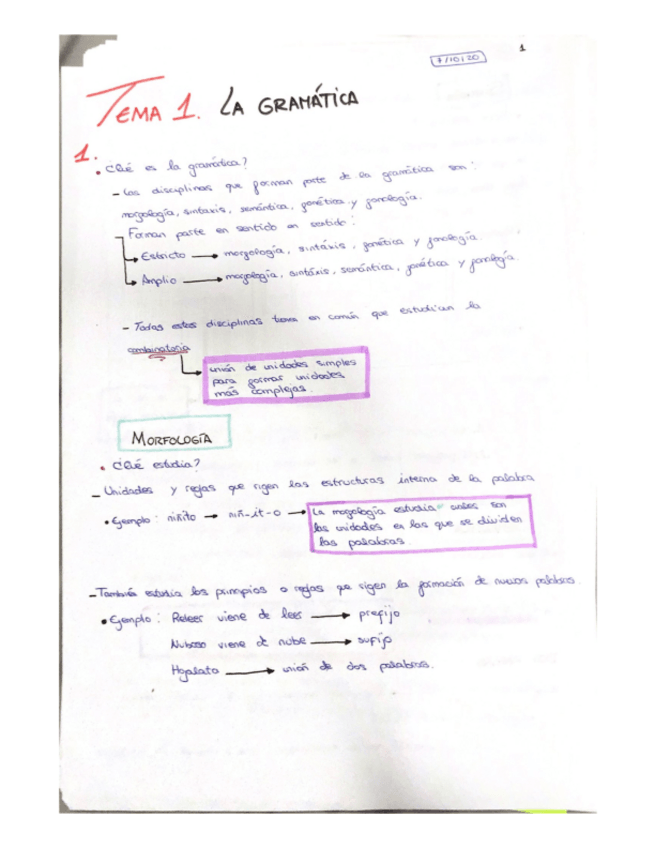 1
7/10/20
TEMA 1. LA GRAMÁTICA
1.
• ¿Qué es la gramática?
- Las disciplinas que forman parte de la gramática son:
morfología, sintaxis, semántica, fonética y fonología.
Forman parte en sentido en sentido:
Estricto → morfología, sintáxis, fonética y fonología.
Amplio → morfología, sintáxis, semántica, fonética y fonología.
- Todas estas disciplinas tienen en común que estudian la
combinatoria
unión de unidades simples
para formar unidades
más complejas.
MORFOLOGÍA
• ¿Qué estudia?
- Unidades y reglas que rigen las estructuras interna de la palabra
• Ejemplo: niñito → niñ-it-o → La morfología estudia cuales son
las unidades en las que se dividen
las palabras.
- También estudia los principios o reglas que rigen la formación de nuevas palabras.
• Ejemplo: Releer viene de leer → prefijo
Nuboso viene de nube → sufijo
Hojalata → unión de dos palabras.